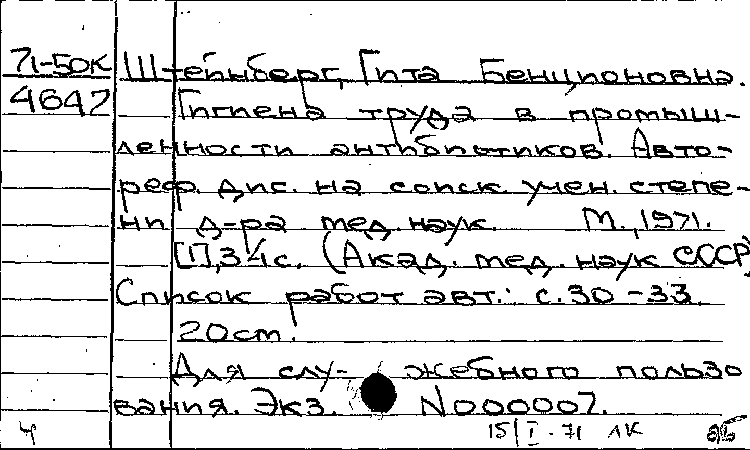 71-50к Штейнберг, Гита Бенционовна.
4642 Гигиена труда в промыш-
ленности антибиотиков. Авто-
реф. дис. на соиск. учен. степе-
ни д-ра мед. наук. М., 1971.
[1], 34 с. (Акад. мед. наук СССР)
Список работ авт.: с. 30-33.
20 см.
Для слу- жебного пользо
вания. Экз. N000007.
15/I-71 ЛК